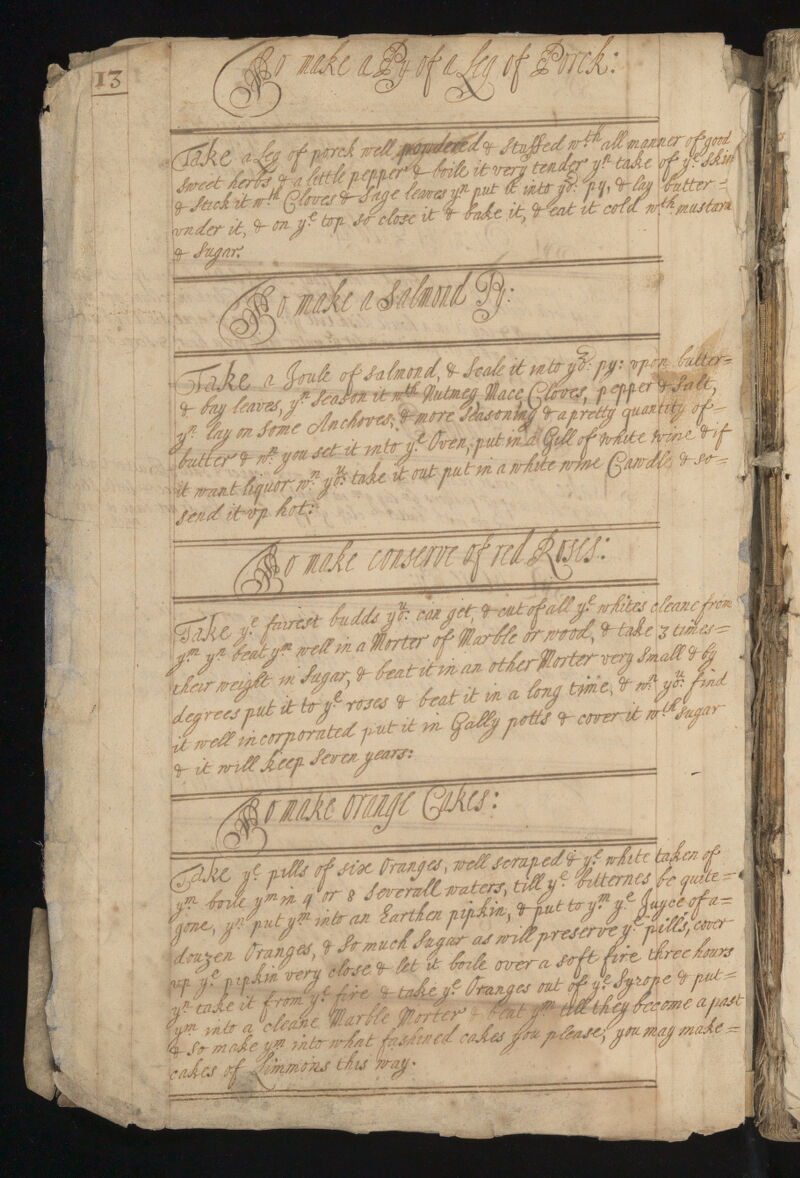 13
To make a Py of a Leg of Porck:
Take a Leg of porck well powdered & stuffed wth all manner of good
sweet herbs & a little pepper & boile it very tender yn take of ye skin
& stick it wth Cloves & Sage leaves yn put it into yor: py, & lay butter=
vnder it, & on ye top so close it & bake it, & eat it cold wth mustard
& Sugar.
To make a Salmond Py:
Take a Joule of Salmond, & Scale it into yor: py: vpon butter=
& bay leaves, yn Season it wth Nutmeg Mace Cloves, pepper & Salt,
yn lay on Some Anchoves, & more Seasoning & a pretty quantity of=
butter & wn you set it into ye Oven, put in a Gill of white wine & if
it want liquor wn you: take it out put in a white wine Cawdle & so=
send it vp hot:
To make conserve of red Roses:
Take ye fairest budds you: can get, & cut of all ye whites cleane from
ym yn beat ym well in a Morter of Marble or wood, & take 3 times=
their weight in Sugar, & beat it in an other Morter very Small & by
degrees put it to ye roses & beat it in a long time, & wn you: find
it well incorporated put it in Gally potts & cover it wth Sugar
& it will keep Seven years:
To make orange Cakes:
Take ye pills of six Oranges, well scraped & ye white taken of
ym boile ym in or 8 Severall waters, till ye bitternes be quite=
gone, yn put ym into an Earthen pipkin, & put to ym ye Juyce of a=
douzen Oranges, & So much Sugar as will preserve ye pills, cover
vp ye pipkin very close & let it boile over a soft fire three hours
yn take it from ye fire & take ye Oranges out of ye Syrope & put=
ym into a cleane Marble Morter & beat ym till they become a past
& So make ym into what fashined cakes you please, you may make=
cakes of Limmons this way.